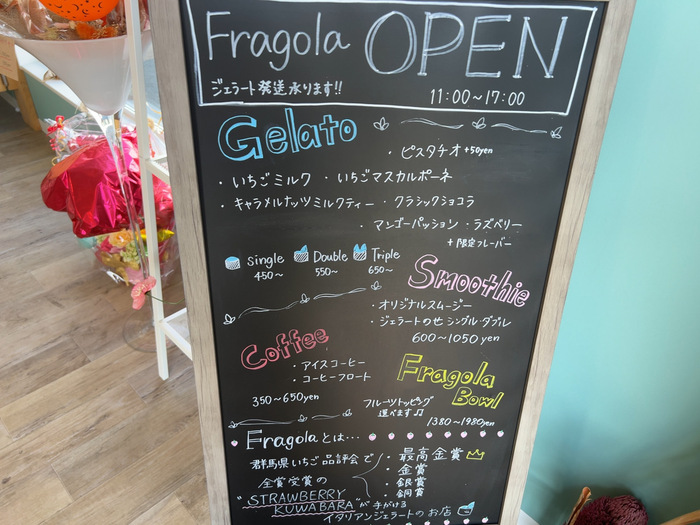 Fragola OPEN
ジェラート発送承ります!!
11:00～17:00
Gelato
・ピスタチオ +50yen
・いちごミルク ・いちごマスカルポーネ
・キャラメルナッツミルクティー ・クラシックショコラ
・マンゴーパッション ・ラズベリー
+限定フレーバー
Single Double Triple
450～ 550～ 650～
Smoothie
・オリジナルスムージー
・ジェラートのせ シングル・ダブル
600～1050yen
Coffee
・アイスコーヒー
・コーヒーフロート
350～650yen
Fragola Bowl
フルーツトッピング
選べます♫
1380～1980yen
Fragolaとは…
群馬県いちご品評会で
・最高金賞
・金賞
・銀賞
・銅賞
金賞受賞の
"STRAWBERRY
KUWABARA"が手がける
イタリアンジェラートのお店